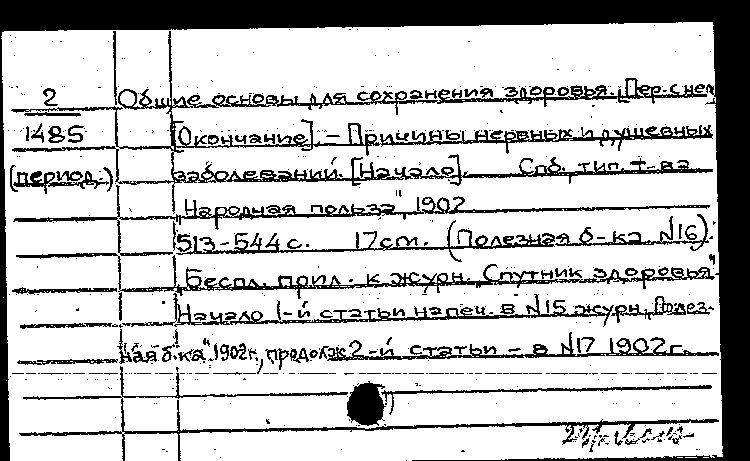 2 Общие основы для сохранения здоровья. [Пер. с нем.
1485 [Окончание]. – Причины нервных и душевных
(период.) заболеваний. [Начало]. Спб., тип. т-ва
„Народная польза", 1902
513-544 с. 17 см. (Полезная б-ка №16).
Беспл. прил. к журн. „Спутник здоровья".
Начало 1-й статьи напеч. в №15 журн. „Полез-
ная б-ка" 1902 г., продолж. 2-й статьи – в №17 1902 г.